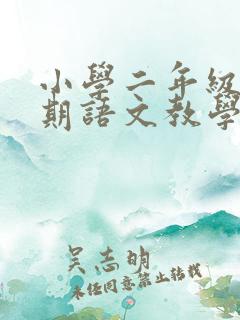 小學二年級
期語文教學
吴志明
未经同意禁止转载